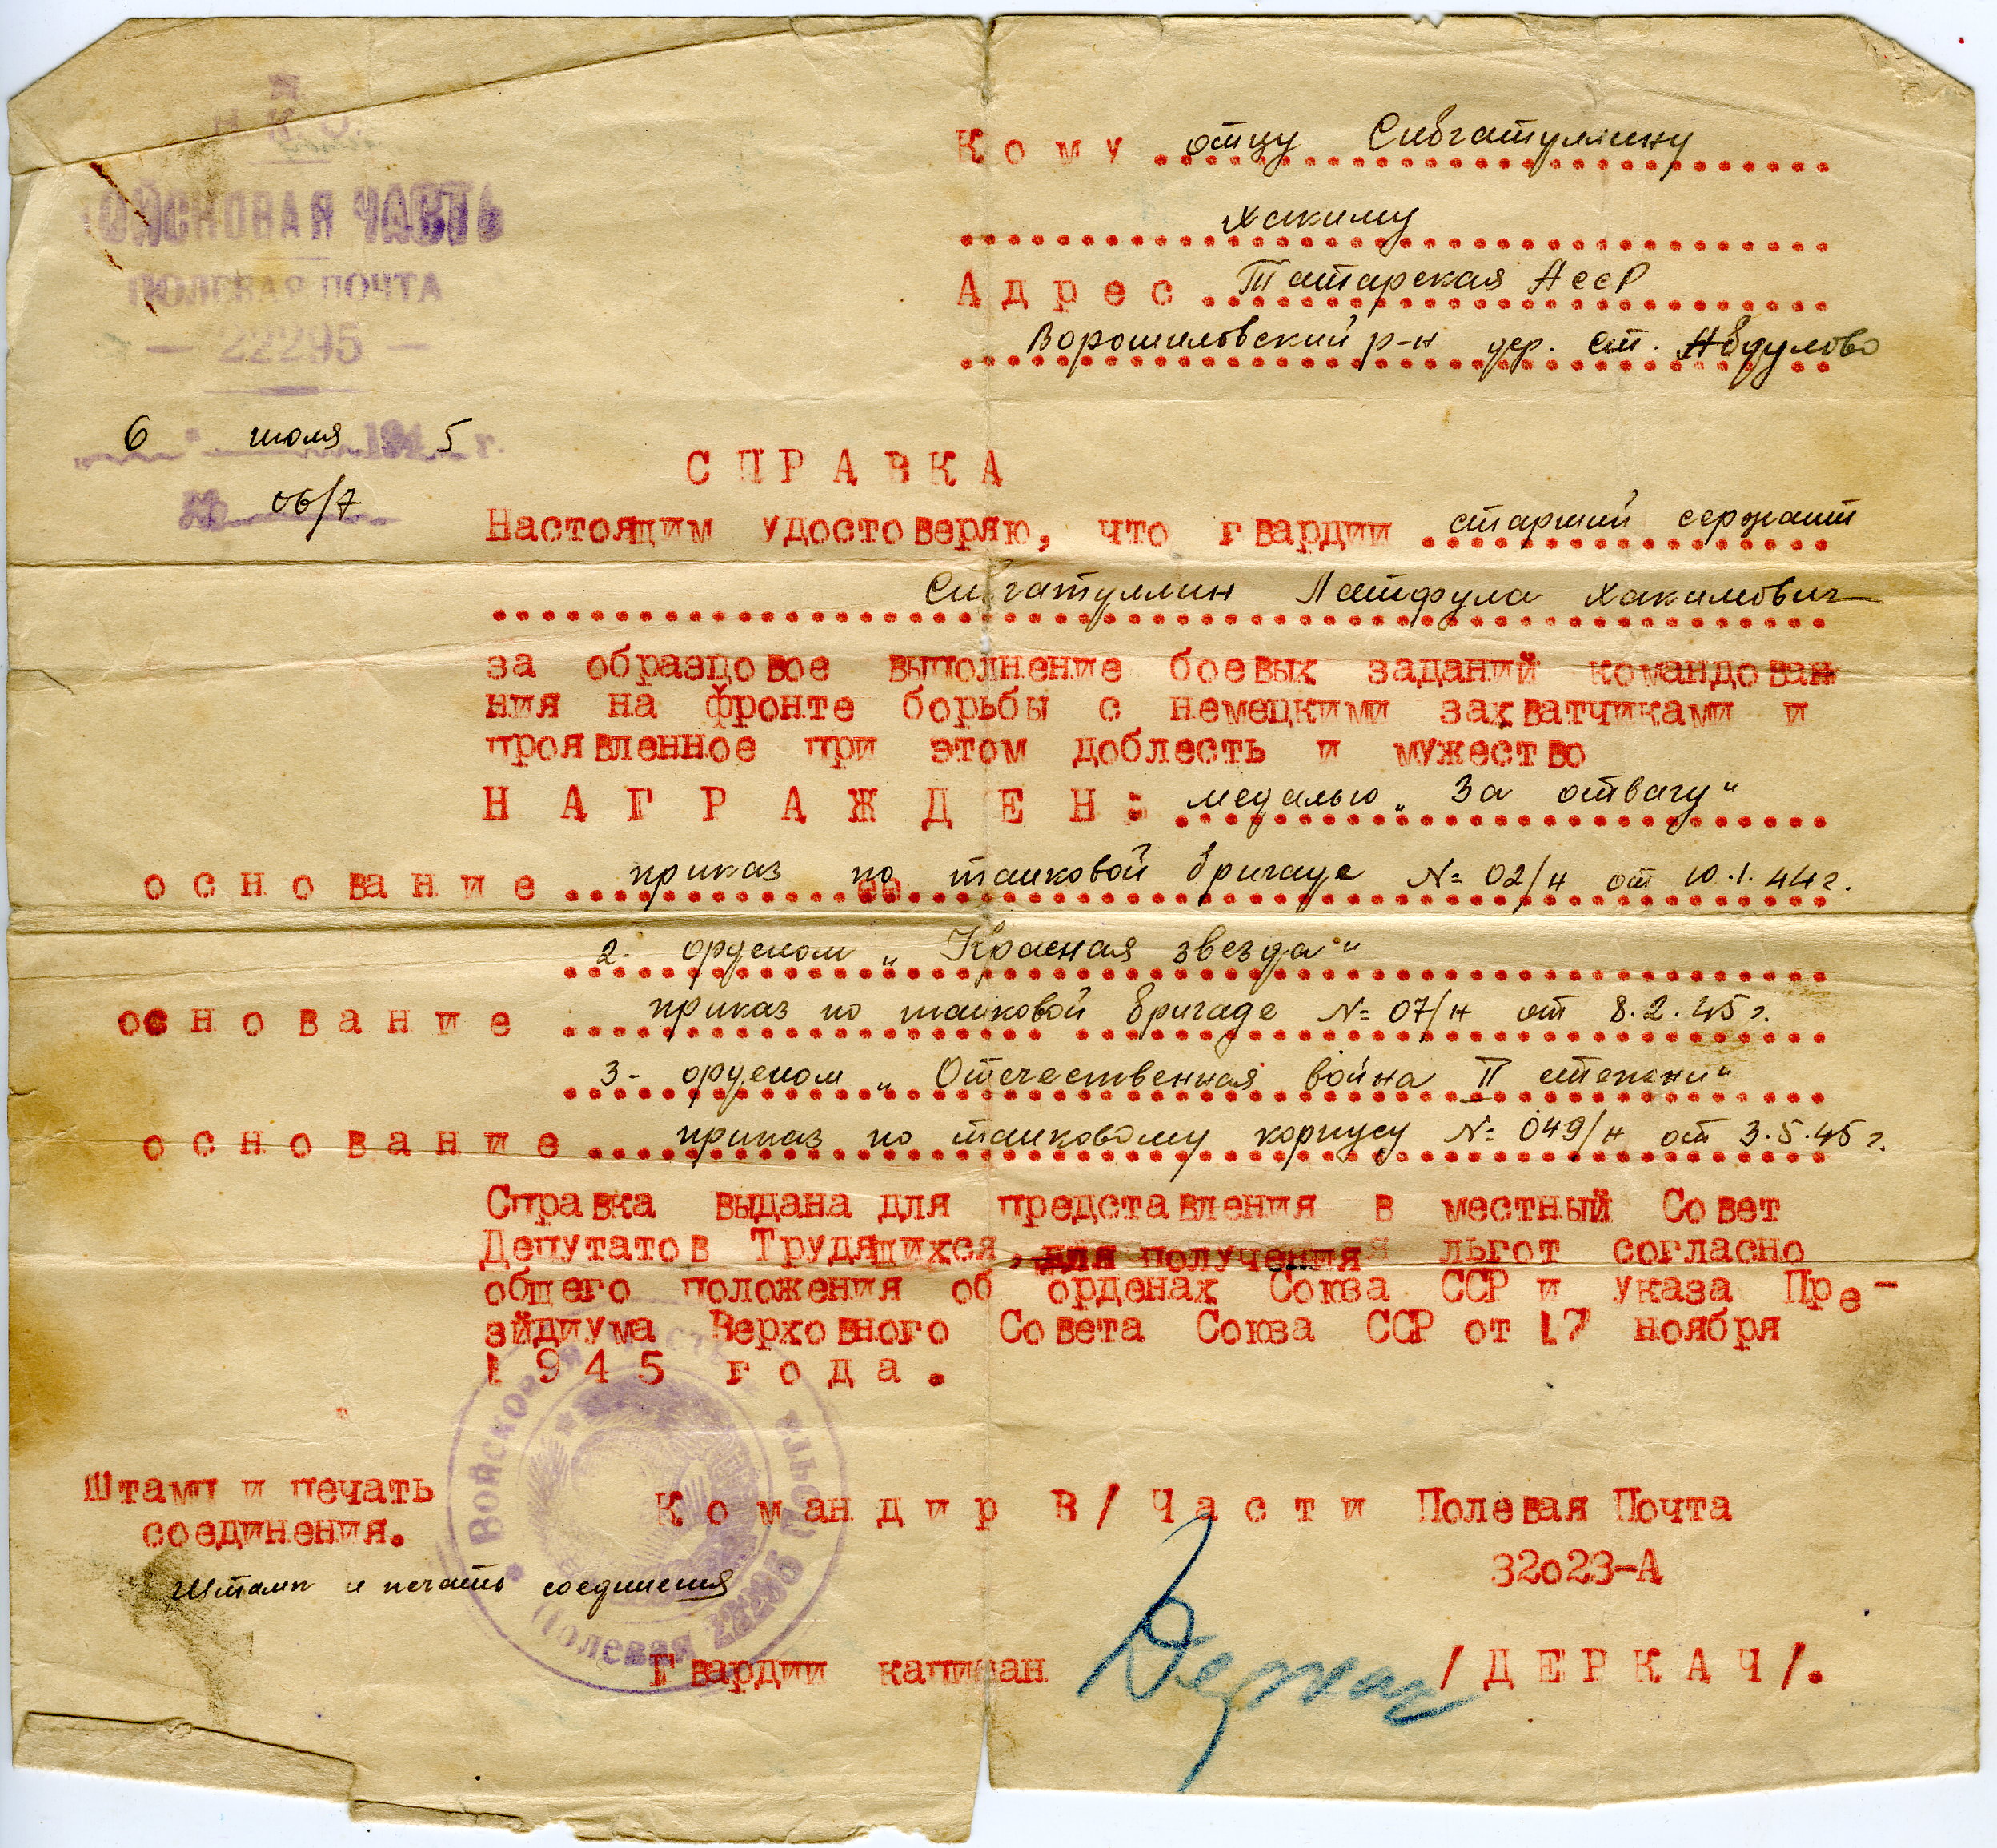 Н К О
ОЙСКОВАЯ ЧАСТЬ
ПОЛЕВАЯ ПОЧТА
— 22295 —
6 " июля 1945 г.
№ 06/7
Кому отцу Сибгатуллину
Хакиму
Адрес Татарская АССР
Ворошиловский р-н дер. Ст. Абдулово
СПРАВКА
Настоящим удостоверяю, что гвардии старший сержант
Сибгатуллин Латфула Хакимович
за образцовое выполнение боевых заданий командован
ния на фронте борьбы с немецкими захватчиками и
проявленное при этом доблесть и мужество
НАГРАЖДЕН: медалью „За отвагу"
основание приказ по танковой бригаде № 02/н от 10.1.44г.
2. орденом „Красная звезда"
основание приказ по танковой бригаде № 07/н от 8.2.45г.
3- орденом „Отечественная война II степени"
основание приказ по танковому корпусу № 049/н от 3.5.45г.
Справка выдана для представления в местный Совет
Депутатов Трудящихся, для получения льгот согласно
общего положения об орденах Союза ССР и указа Пре-
зйдиума Верховного Совета Союза ССР от 17 ноября
1945 года.
Штамп и печать
соединения.
Командир В/Части Полевая Почта
32023-А
Штамп и печать соединения
Гвардии капитан Деркач /ДЕРКАЧ/.
* ВОЙСКОВАЯ ЧАСТЬ * Полевая Почта 22295